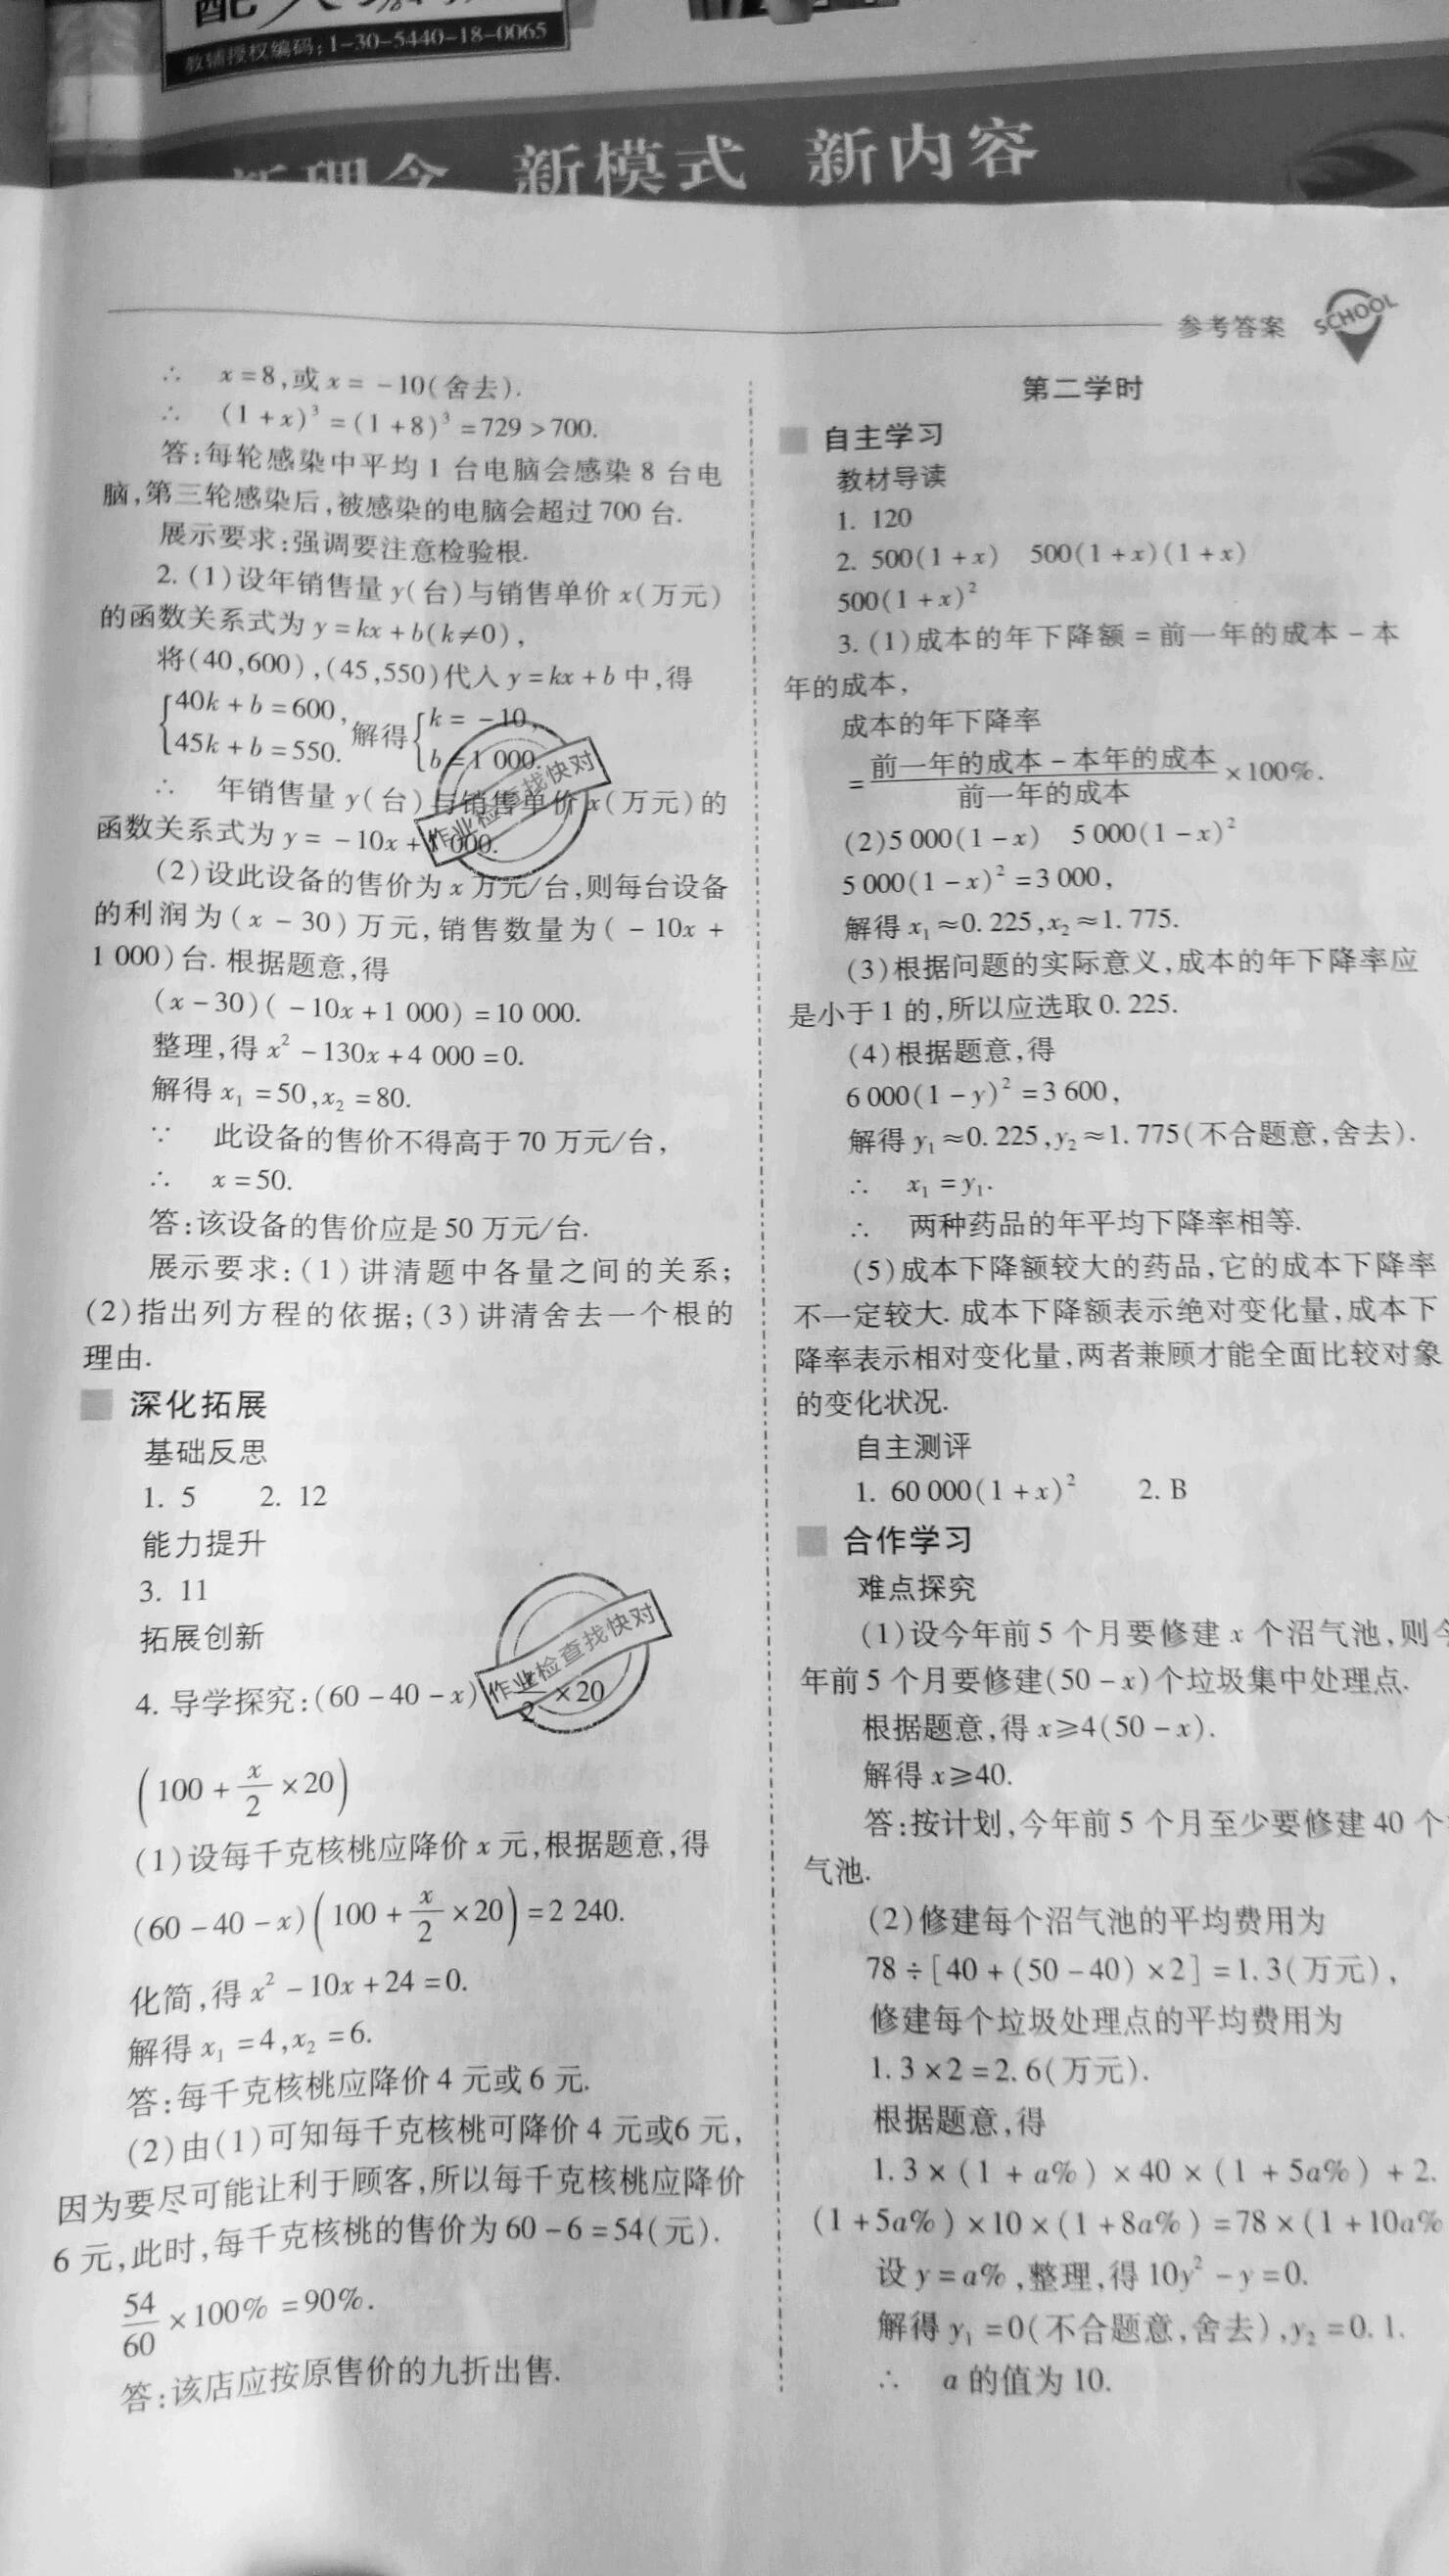 教辅授权编码:1-30-5440-18-0065
新模式 新内容
参考答案
SCHOOL
∴ x=8,或x=-10(舍去).
∴ (1+x)³=(1+8)³=729>700.
答:每轮感染中平均1台电脑会感染8台电
脑,第三轮感染后,被感染的电脑会超过700台.
展示要求:强调要注意检验根.
2.(1)设年销售量y(台)与销售单价x(万元)
的函数关系式为y=kx+b(k≠0),
将(40,600),(45,550)代入y=kx+b中,得
{40k+b=600, 45k+b=550. 解得{k=-10, b=1 000.
∴ 年销售量y(台)与销售单价x(万元)的
函数关系式为y=-10x+1 000.
(2)设此设备的售价为x万元/台,则每台设备
的利润为(x-30)万元,销售数量为(-10x+
1 000)台.根据题意,得
(x-30)(-10x+1 000)=10 000.
整理,得x²-130x+4 000=0.
解得x₁=50,x₂=80.
∵ 此设备的售价不得高于70万元/台,
∴ x=50.
答:该设备的售价应是50万元/台.
展示要求:(1)讲清题中各量之间的关系;
(2)指出列方程的依据;(3)讲清舍去一个根的
理由.
深化拓展
基础反思
1. 5 2. 12
能力提升
3. 11
拓展创新
4. 导学探究:(60-40-x) x/2×20
(100+x/2×20)
(1)设每千克核桃应降价x元,根据题意,得
(60-40-x)(100+x/2×20)=2 240.
化简,得x²-10x+24=0.
解得x₁=4,x₂=6.
答:每千克核桃应降价4元或6元.
(2)由(1)可知每千克核桃可降价4元或6元,
因为要尽可能让利于顾客,所以每千克核桃应降价
6元,此时,每千克核桃的售价为60-6=54(元).
54/60×100%=90%.
答:该店应按原售价的九折出售.
作业检查找快对
作业检查找快对
第二学时
自主学习
教材导读
1. 120
2. 500(1+x) 500(1+x)(1+x)
500(1+x)²
3.(1)成本的年下降额=前一年的成本-本
年的成本,
成本的年下降率
=前一年的成本-本年的成本/前一年的成本×100%.
(2)5 000(1-x) 5 000(1-x)²
5 000(1-x)²=3 000,
解得x₁≈0.225,x₂≈1.775.
(3)根据问题的实际意义,成本的年下降率应
是小于1的,所以应选取0.225.
(4)根据题意,得
6 000(1-y)²=3 600,
解得y₁≈0.225,y₂≈1.775(不合题意,舍去).
∴ x₁=y₁.
∴ 两种药品的年平均下降率相等.
(5)成本下降额较大的药品,它的成本下降率
不一定较大.成本下降额表示绝对变化量,成本下
降率表示相对变化量,两者兼顾才能全面比较对象
的变化状况.
自主测评
1. 60 000(1+x)² 2. B
合作学习
难点探究
(1)设今年前5个月要修建x个沼气池,则今
年前5个月要修建(50-x)个垃圾集中处理点.
根据题意,得x≥4(50-x).
解得x≥40.
答:按计划,今年前5个月至少要修建40个
气池.
(2)修建每个沼气池的平均费用为
78÷[40+(50-40)×2]=1.3(万元),
修建每个垃圾处理点的平均费用为
1.3×2=2.6(万元).
根据题意,得
1.3×(1+a%)×40×(1+5a%)+2.
(1+5a%)×10×(1+8a%)=78×(1+10a%
设y=a%,整理,得10y²-y=0.
解得y₁=0(不合题意,舍去),y₂=0.1.
∴ a的值为10.